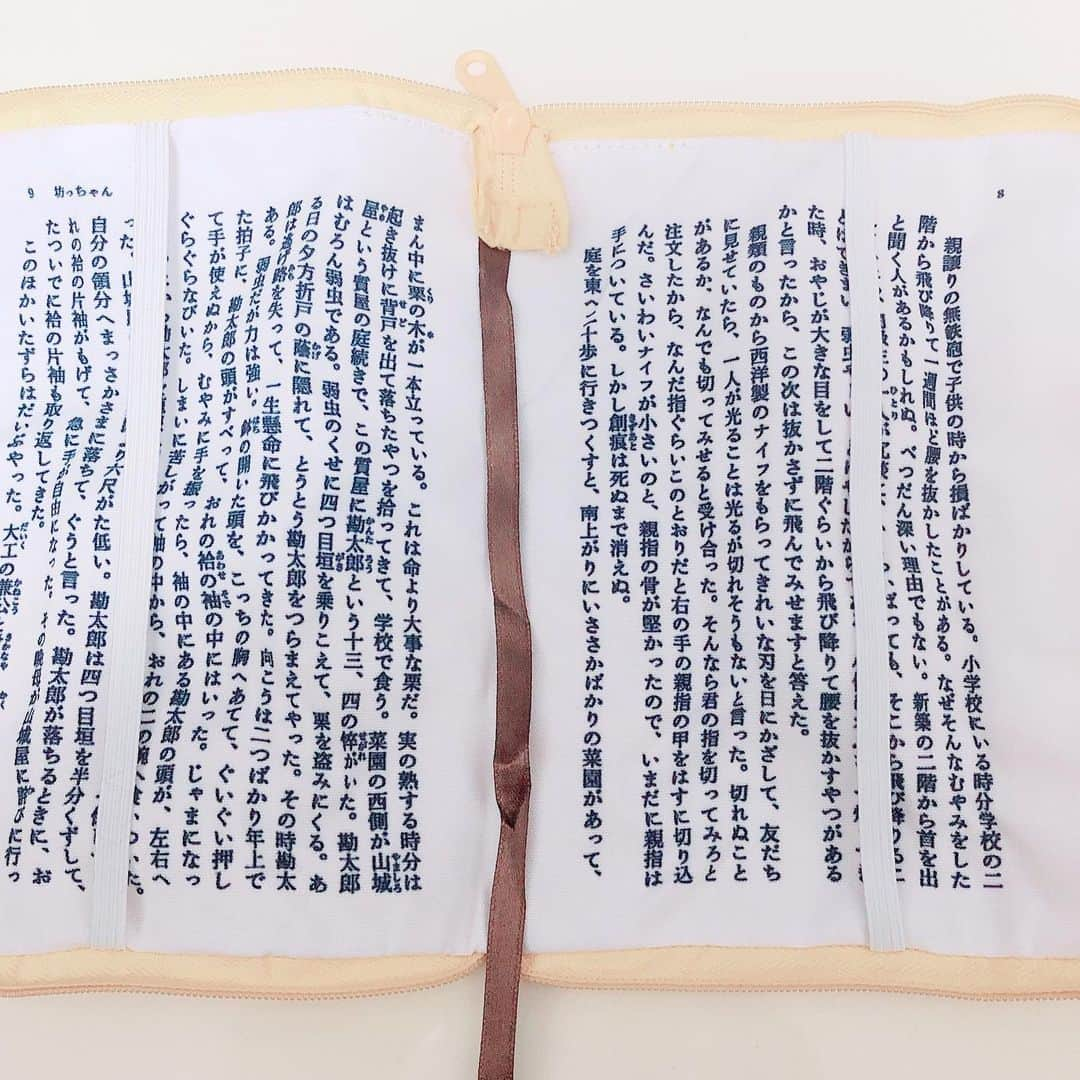 8
親譲りの無鉄砲で子供の時から損ばかりしている。小学校にいる時分学校の二
階から飛び降りて一週間ほど腰を抜かしたことがある。なぜそんなむやみをした
と聞く人があるかもしれぬ。べつだん深い理由でもない。新築の二階から首を出
の一人が冗談に、ばっても、そこから飛び降りるこ
とはできまい。弱虫や はやしたから
た時、おやじが大きな目をして二階ぐらいから飛び降りて腰を抜かすやつがある
かと言ったから、この次は抜かさずに飛んでみせますと答えた。
親類のものから西洋製のナイフをもらってきれいな刃を日にかざして、友だち
に見せていたら、一人が光ることは光るが切れそうもないと言った。切れぬこと
があるか、なんでも切ってみせると受け合った。そんなら君の指を切ってみろと
注文したから、なんだ指ぐらいこのとおりだと右の手の親指の甲をはすに切り込
んだ。さいわいナイフが小さいのと、親指の骨が堅かったので、いまだに親指は
手についている。しかし創痕は死ぬまで消えぬ。
庭を東へ二十歩に行きつくすと、南上がりにいささかばかりの菜園があって、
9 坊っちゃん
まん中に栗の木が一本立っている。これは命より大事な栗だ。実の熟する時分は
起き抜けに背戸を出て落ちたやつを拾ってきて、学校で食う。菜園の西側が山城
屋という質屋の庭続きで、この質屋に勘太郎という十三、四の悴がいた。勘太郎
はむろん弱虫である。弱虫のくせに四つ目垣を乗りこえて、栗を盗みにくる。あ
る日の夕方折戸の蔭に隠れて、とうとう勘太郎をつらまえてやった。その時勘太
郎は逃げ路を失って、一生懸命に飛びかかってきた。向こうは二つばかり年上で
ある。弱虫だが力は強い。鉢の開いた頭を、こっちの胸へあてて、ぐいぐい押し
た拍子に、勘太郎の頭がすべって、おれの袷の袖の中にはいった。じゃまになっ
て手が使えぬから、むやみに手を振ったら、袖の中にある勘太郎の頭が、左右へ
ぐらぐらなびいた。しまいに苦しがって袖の中から、おれの二の腕へ食いついた。
った。山城
自分の領分へまっさかさまに落ちて、ぐうと言った。勘太郎が落ちるときに、お
れの袷の片袖がもげて、急に手が自由になった。その晩母が山城屋に詫びに行っ
たついでに袷の片袖も取り返してきた。
このほかいたずらはだいぶやった。大工の兼公と
より六尺がた低い。勘太郎は四つ目垣を半分くずして、